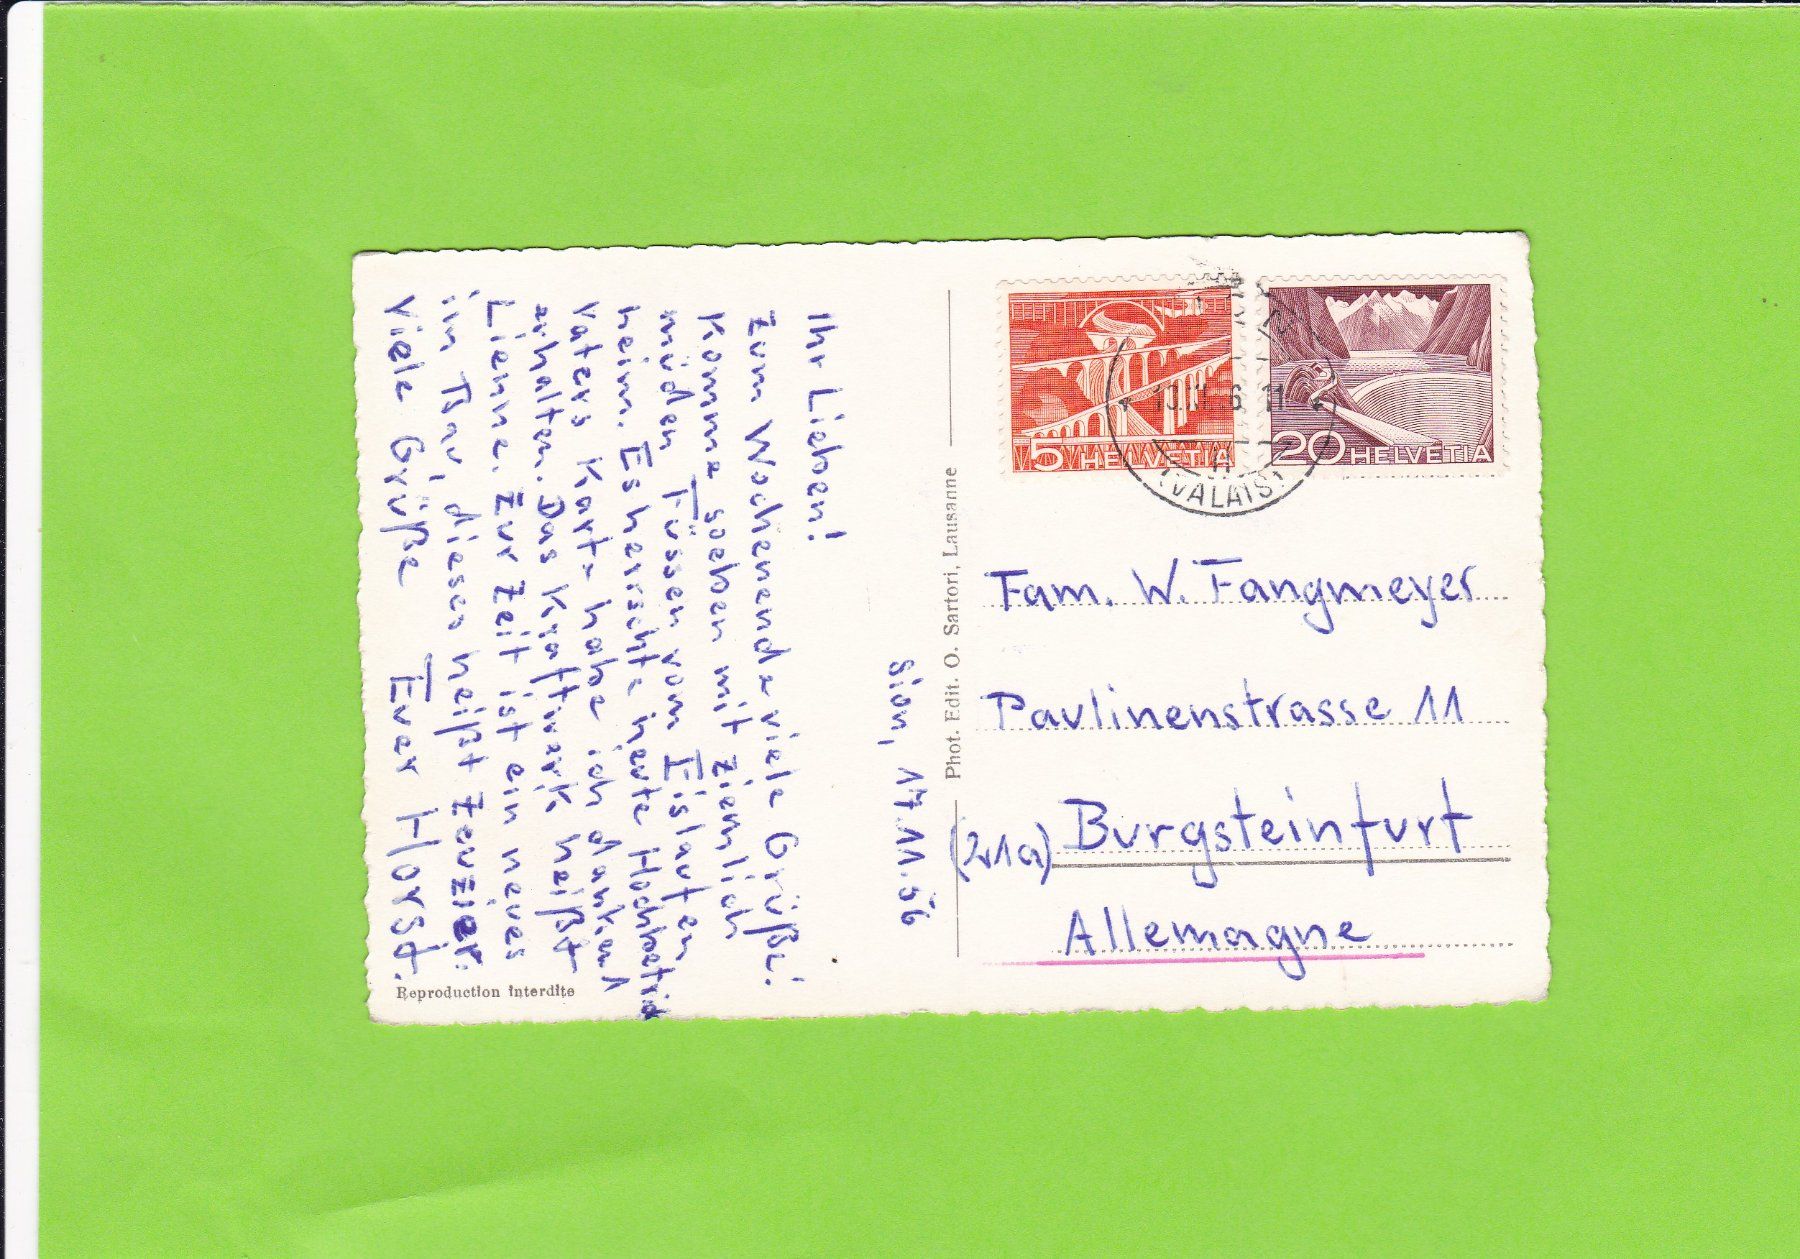 Sion, 17.11.56
Ihr Lieben!
Zum Wochenende viele Grüße!
Komme soeben mit ziemlich
müden Füssen vom Eislaufen
heim. Es herrschte heute Hochbetrieb
Vaters Karte habe ich dankend
erhalten. Das Kraftwerk heißt
Lienne. Zur Zeit ist ein neues
im Bau, dieses heißt Zeuzier.
Viele Grüße Euer Horst.
Reproduction interdite
Phot. Edit. O. Sartori, Lausanne
5 HELVETIA
20 HELVETIA
(VALAIS)
Fam. W. Fangmeyer
Paulinenstrasse 11
(21a) Burgsteinfurt
Allemagne